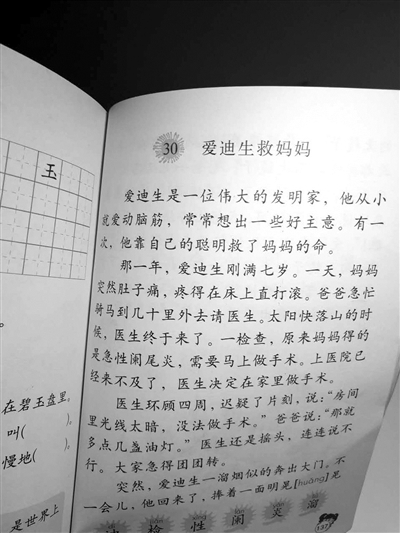 玉
在碧玉盘里。
叫( )。
慢地( )。
是世界上
30 爱迪生救妈妈
爱迪生是一位伟大的发明家，他从小
就爱动脑筋，常常想出一些好主意。有一
次，他靠自己的聪明救了妈妈的命。
那一年，爱迪生刚满七岁。一天，妈妈
突然肚子痛，疼得在床上直打滚。爸爸急忙
骑马到几十里外去请医生。太阳快落山的时
候，医生终于来了。一检查，原来妈妈得的
是急性阑尾炎，需要马上做手术。上医院已
经来不及了，医生决定在家里做手术。
医生环顾四周，迟疑了片刻，说：“房间
里光线太暗，没法做手术。”爸爸说：“那就
多点几盏油灯。”医生还是摇头，连连说不
行。大家急得团团转。
突然，爱迪生一溜烟似的奔出大门。不
一会儿，他回来了，捧着一面明晃[huǎng]晃
检 性 阑 炎 溜
137